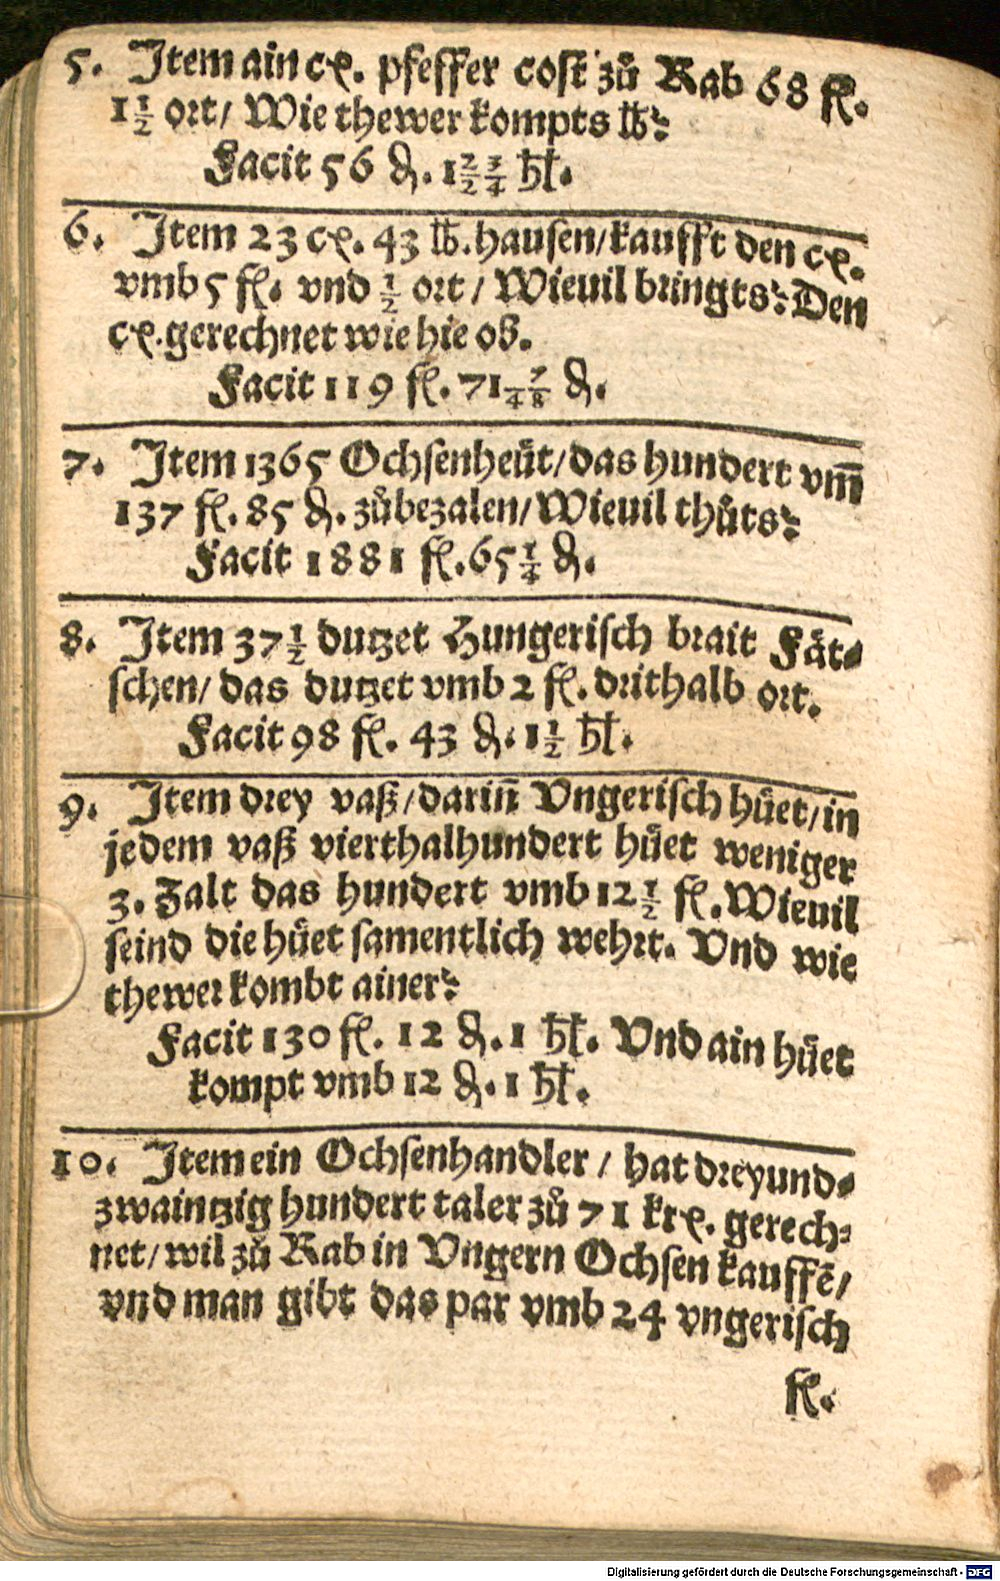 5. Item ain cꝛ. pfeffer cost zů Rab 68 fl.
1 1/2 ort/ Wie thewer kompts lb?
Facit 56 ₰. 1 2/2 3/4 hl.
6. Item 23 cꝛ. 43 lb. hausen/kaufft den cꝛ.
vmb 5 fl. vnd 1/2 ort/ Wieuil bringts? Den
cꝛ. gerechnet wie hie ob.
Facit 119 fl. 71 /4 7/8 ₰.
7. Item 1365 Ochsenheüt/das hundert vm̄
137 fl. 85 ₰. zůbezalen/Wieuil thůts?
Facit 1881 fl. 65 1/4 ₰.
8. Item 37 1/2 dutzet Hungerisch brait Fät-
schen/ das dutzet vmb 2 fl. drithalb ort.
Facit 98 fl. 43 ₰. 1 1/2 hl.
9. Item drey vaß/darin̄ Vngerisch hüet/in
jedem vaß vierthalhundert hüet weniger
3. Zalt das hundert vmb 12 1/2 fl. Wieuil
seind die hüet samentlich wehrt. Vnd wie
thewer kombt ainer?
Facit 130 fl. 12 ₰. 1 hl. Vnd ain hüet
kompt vmb 12 ₰. 1 hl.
10. Item ein Ochsenhandler/ hat dreyund-
zwaintzig hundert taler zů 71 krꝛ. gerech-
net/wil zů Rab in Vngern Ochsen kauffē/
vnd man gibt das par vmb 24 vngerisch
fl.
Digitalisierung gefördert durch die Deutsche Forschungsgemeinschaft - DFG